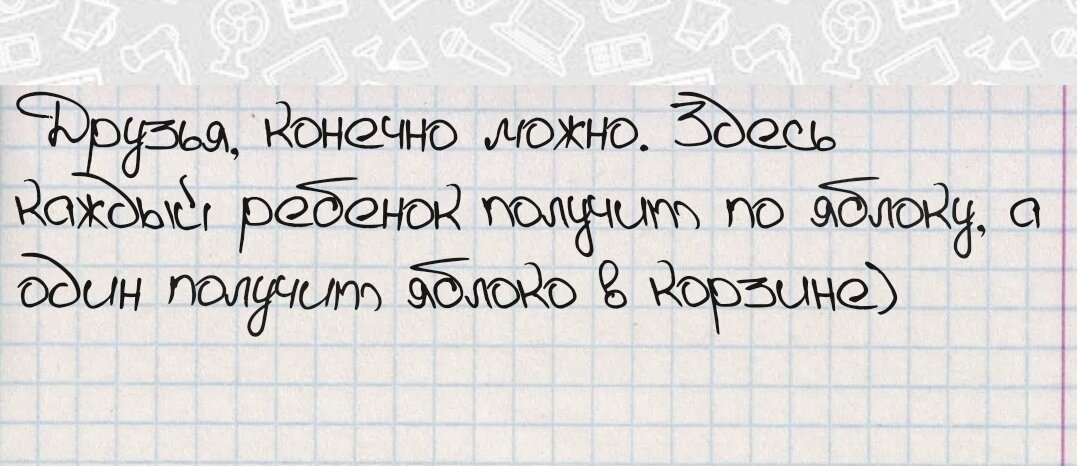 Друзья, конечно можно. Здесь
каждый ребенок получит по яблоку, а
один получит яблоко в корзине)